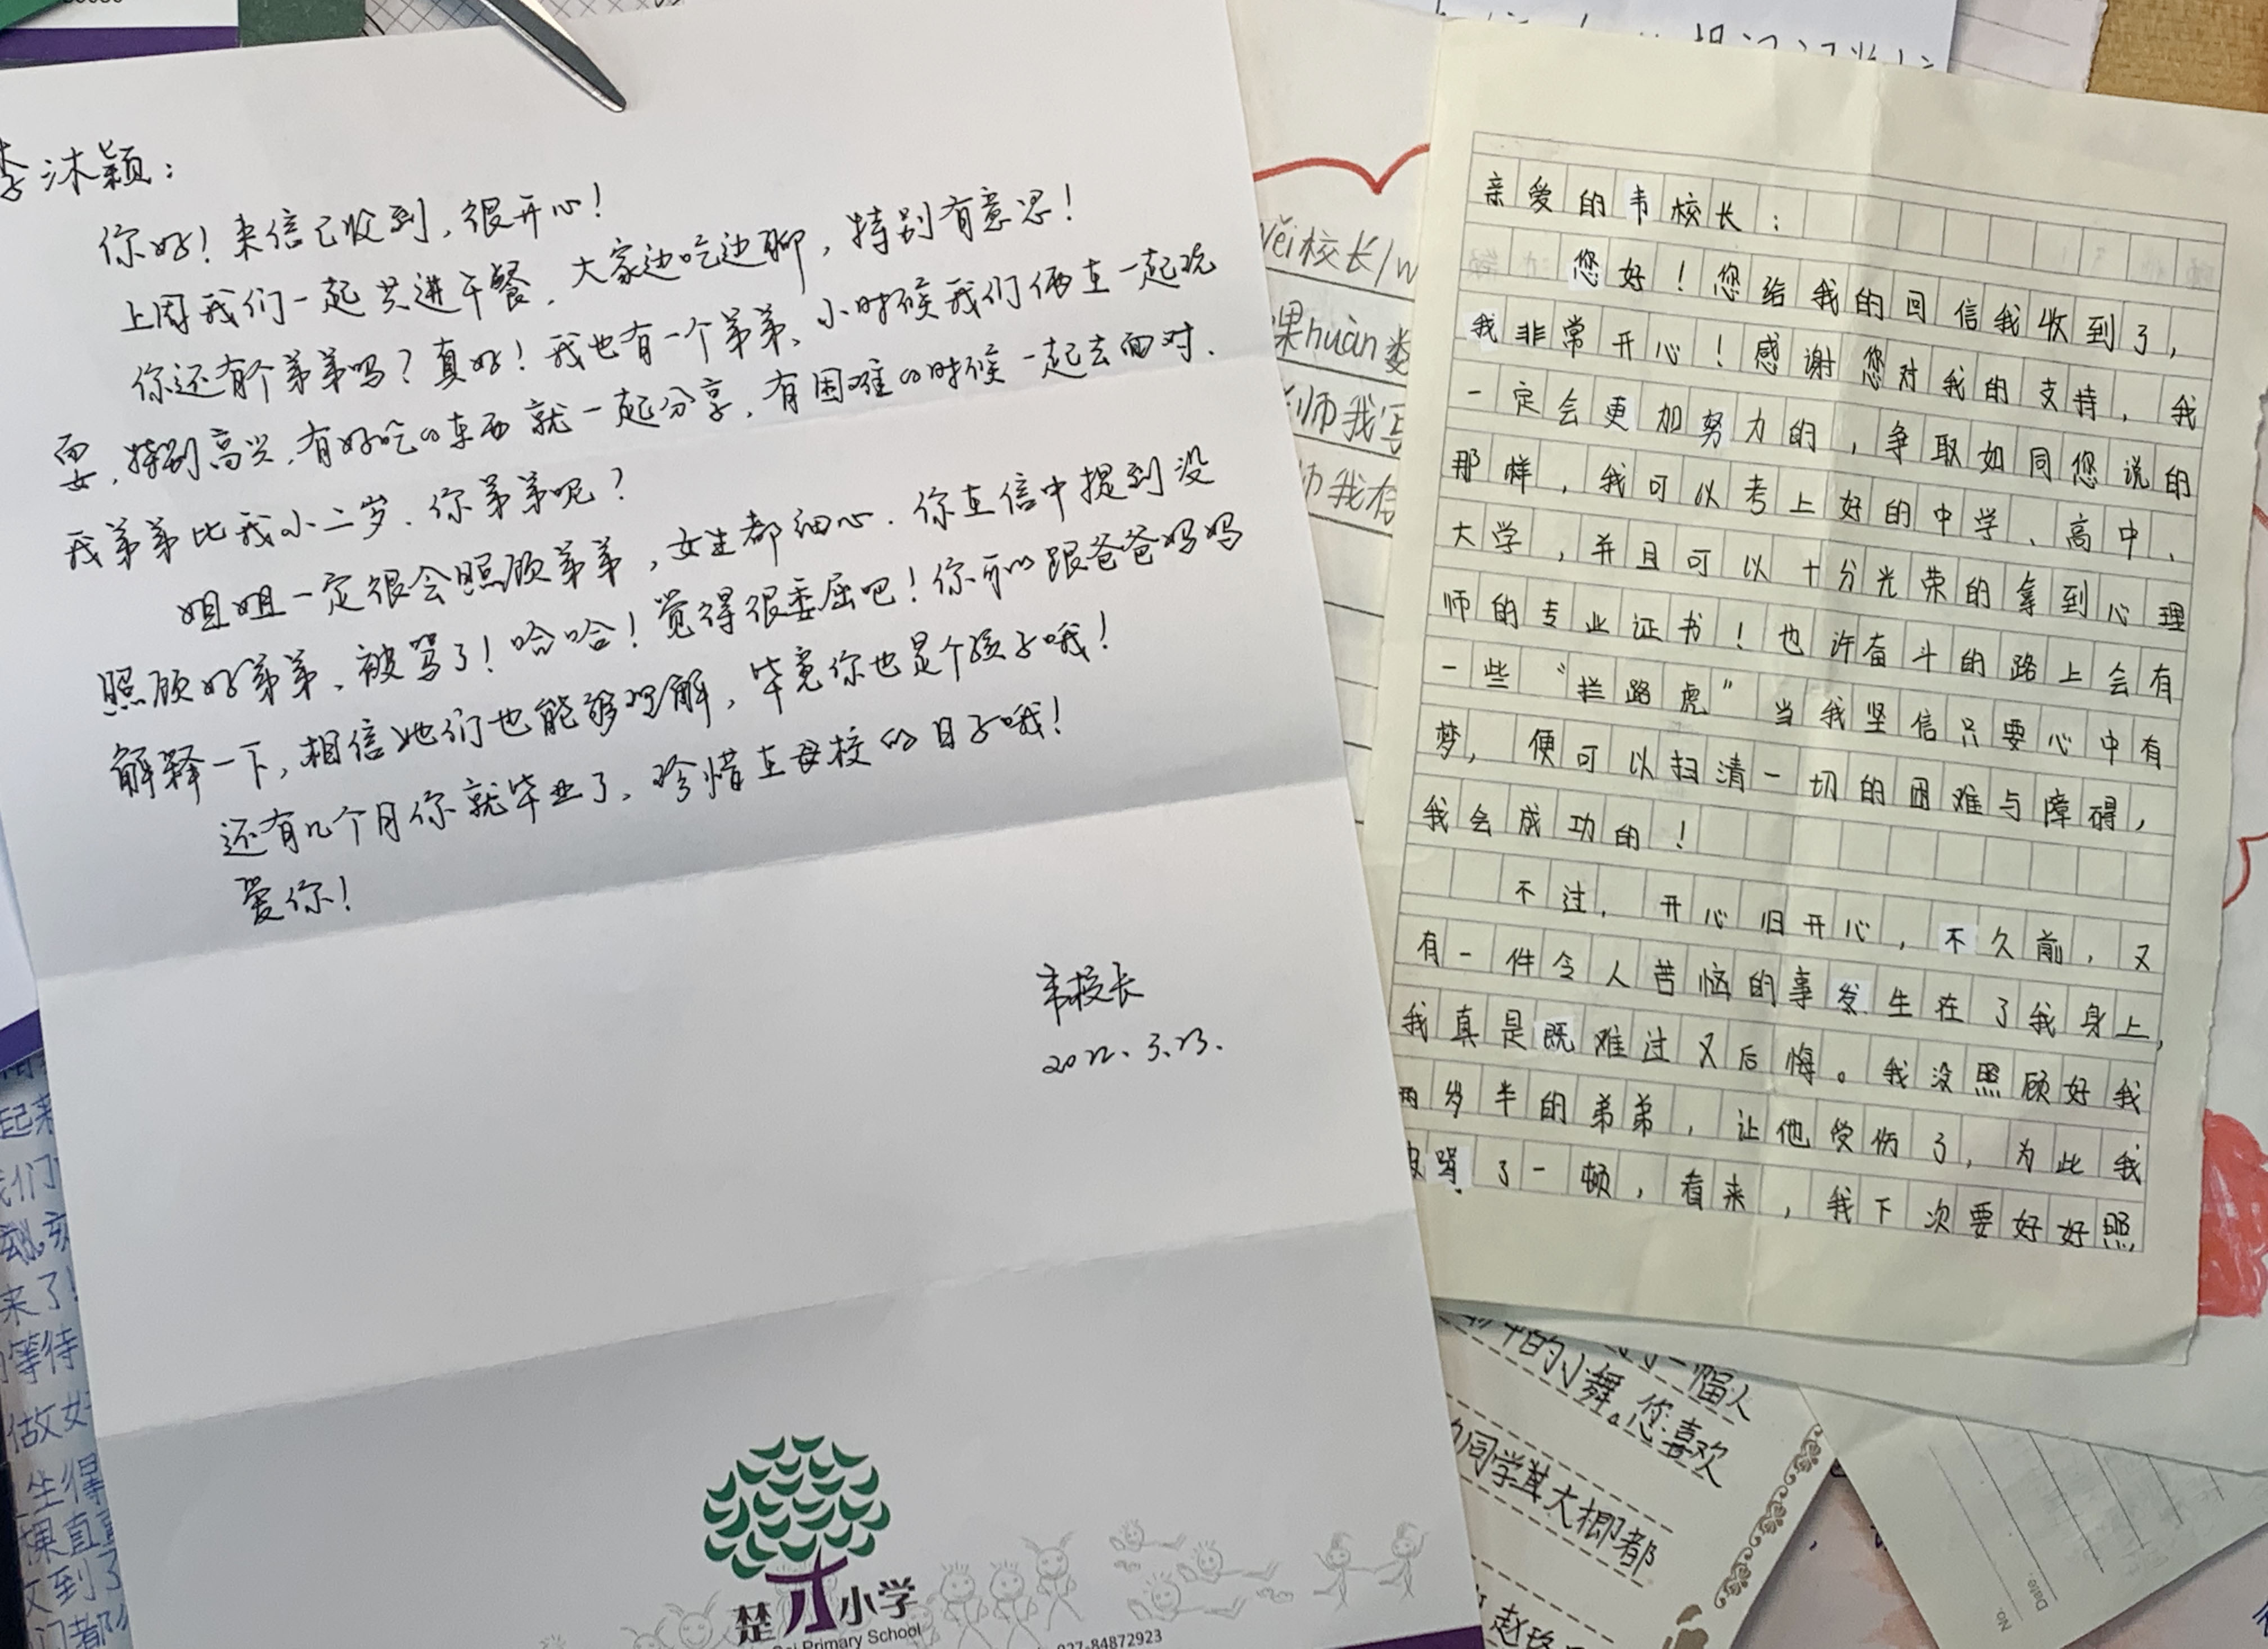 李沐颖：
你好！来信已收到，很开心！
上周我们一起共进午餐，大家边吃边聊，特别有意思！
你还有个弟弟吗？真好！我也有一个弟弟、小时候我们俩在一起玩
耍，特别高兴，有好吃的东西就一起分享，有困难的时候一起去面对．
我弟弟比我小二岁．你弟弟呢？
姐姐一定很会照顾弟弟，女生都细心．你在信中提到没
照顾好弟弟、被骂了！哈哈！觉得很委屈吧！你可以跟爸爸妈妈
解释一下，相信她们也能够理解，毕竟你也是个孩子哦！
还有几个月你就毕业了、珍惜在母校的日子哦！
爱你！
韦校长
2022．3．23．
楚才小学
Primary School
027-84872923
亲爱的韦校长：
您好！您给我的回信我收到了，
我非常开心！感谢您对我的支持，我
一定会更加努力的，争取如同您说的
那样，我可以考上好的中学、高中、
大学，并且可以十分光荣的拿到心理
师的专业证书！也许奋斗的路上会有
一些“拦路虎”当我坚信只要心中有
梦，便可以扫清一切的困难与障碍，
我会成功的！
不过，开心归开心，不久前，又
有一件令人苦恼的事发生在了我身上，
我真是既难过又后悔。我没照顾好我
两岁半的弟弟，让他受伤了，为此我
被骂了一顿，看来，我下次要好好照
Wěi校长/w
课huàn数
师我写
我存
起来
我们
来了！
等待
做好
生得
果直
收到了
门都
一幅人
的小舞。您喜欢
同学其大都都
赵
No.
Date.